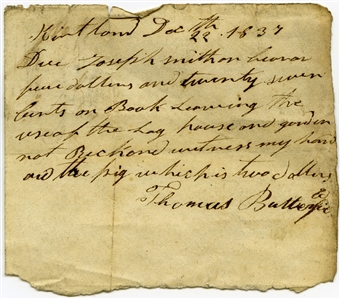 Kirtland Dec 22th 1837
Due Joseph Smith on bearor
five dollars and twenty seven
cents on Book Leaving the
use of the Log house and gorden
not Reckond witness my hand
and the pig which is two dollars
Thomas Butter